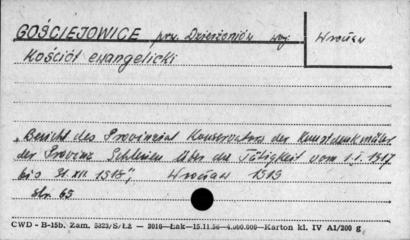 GOŚCIEJOWICE pow. Dzierżoniów woj. Wrocław
Kościół ewangelicki
"Bericht des Provinzial Konservators der Kunstdenkmäler
der Provinz Schlesien über die Tätigkeit vom 1.I.1917
bis 31.XII.1918", Wrocław 1919
str. 65
CWD - B-15b. Zam. 5823/S/ŁŻ — 2016—Łak—15.11.56—4.000.000—Karton kl. IV A1/200 g